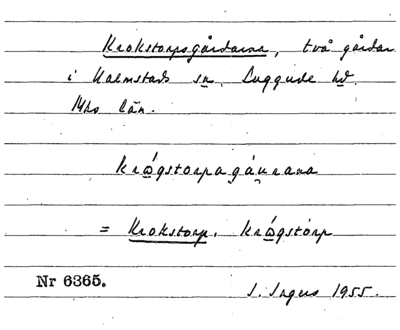 Krokstorpsgårdarna, två gårdar
i Kalmstads sn, Luggude hd.
Mhs län.
krǫ́gstorpagáu̯rana
= Krokstorp, krǫ́gstòrp
Nr 6365.
I. Ingers 1955.